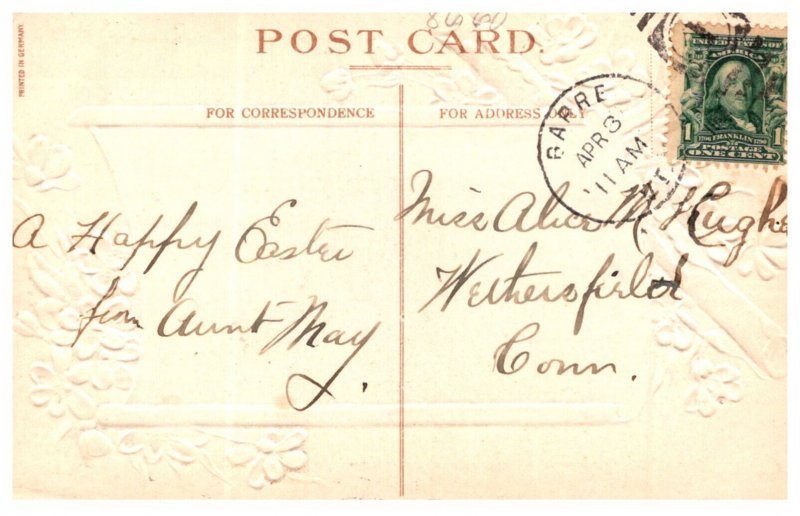 PRINTED IN GERMANY.
8660
POST CARD.
FOR CORRESPONDENCE
FOR ADDRESS ONLY
BARRE
APR 3
11 AM
VT.
UNITED STATES OF
AMERICA
1 FRANKLIN 1
1706 1790
POSTAGE
ONE CENT
A Happy Easter
from Aunt May.
Miss Alice M. Hughe
Wethersfield
Conn.